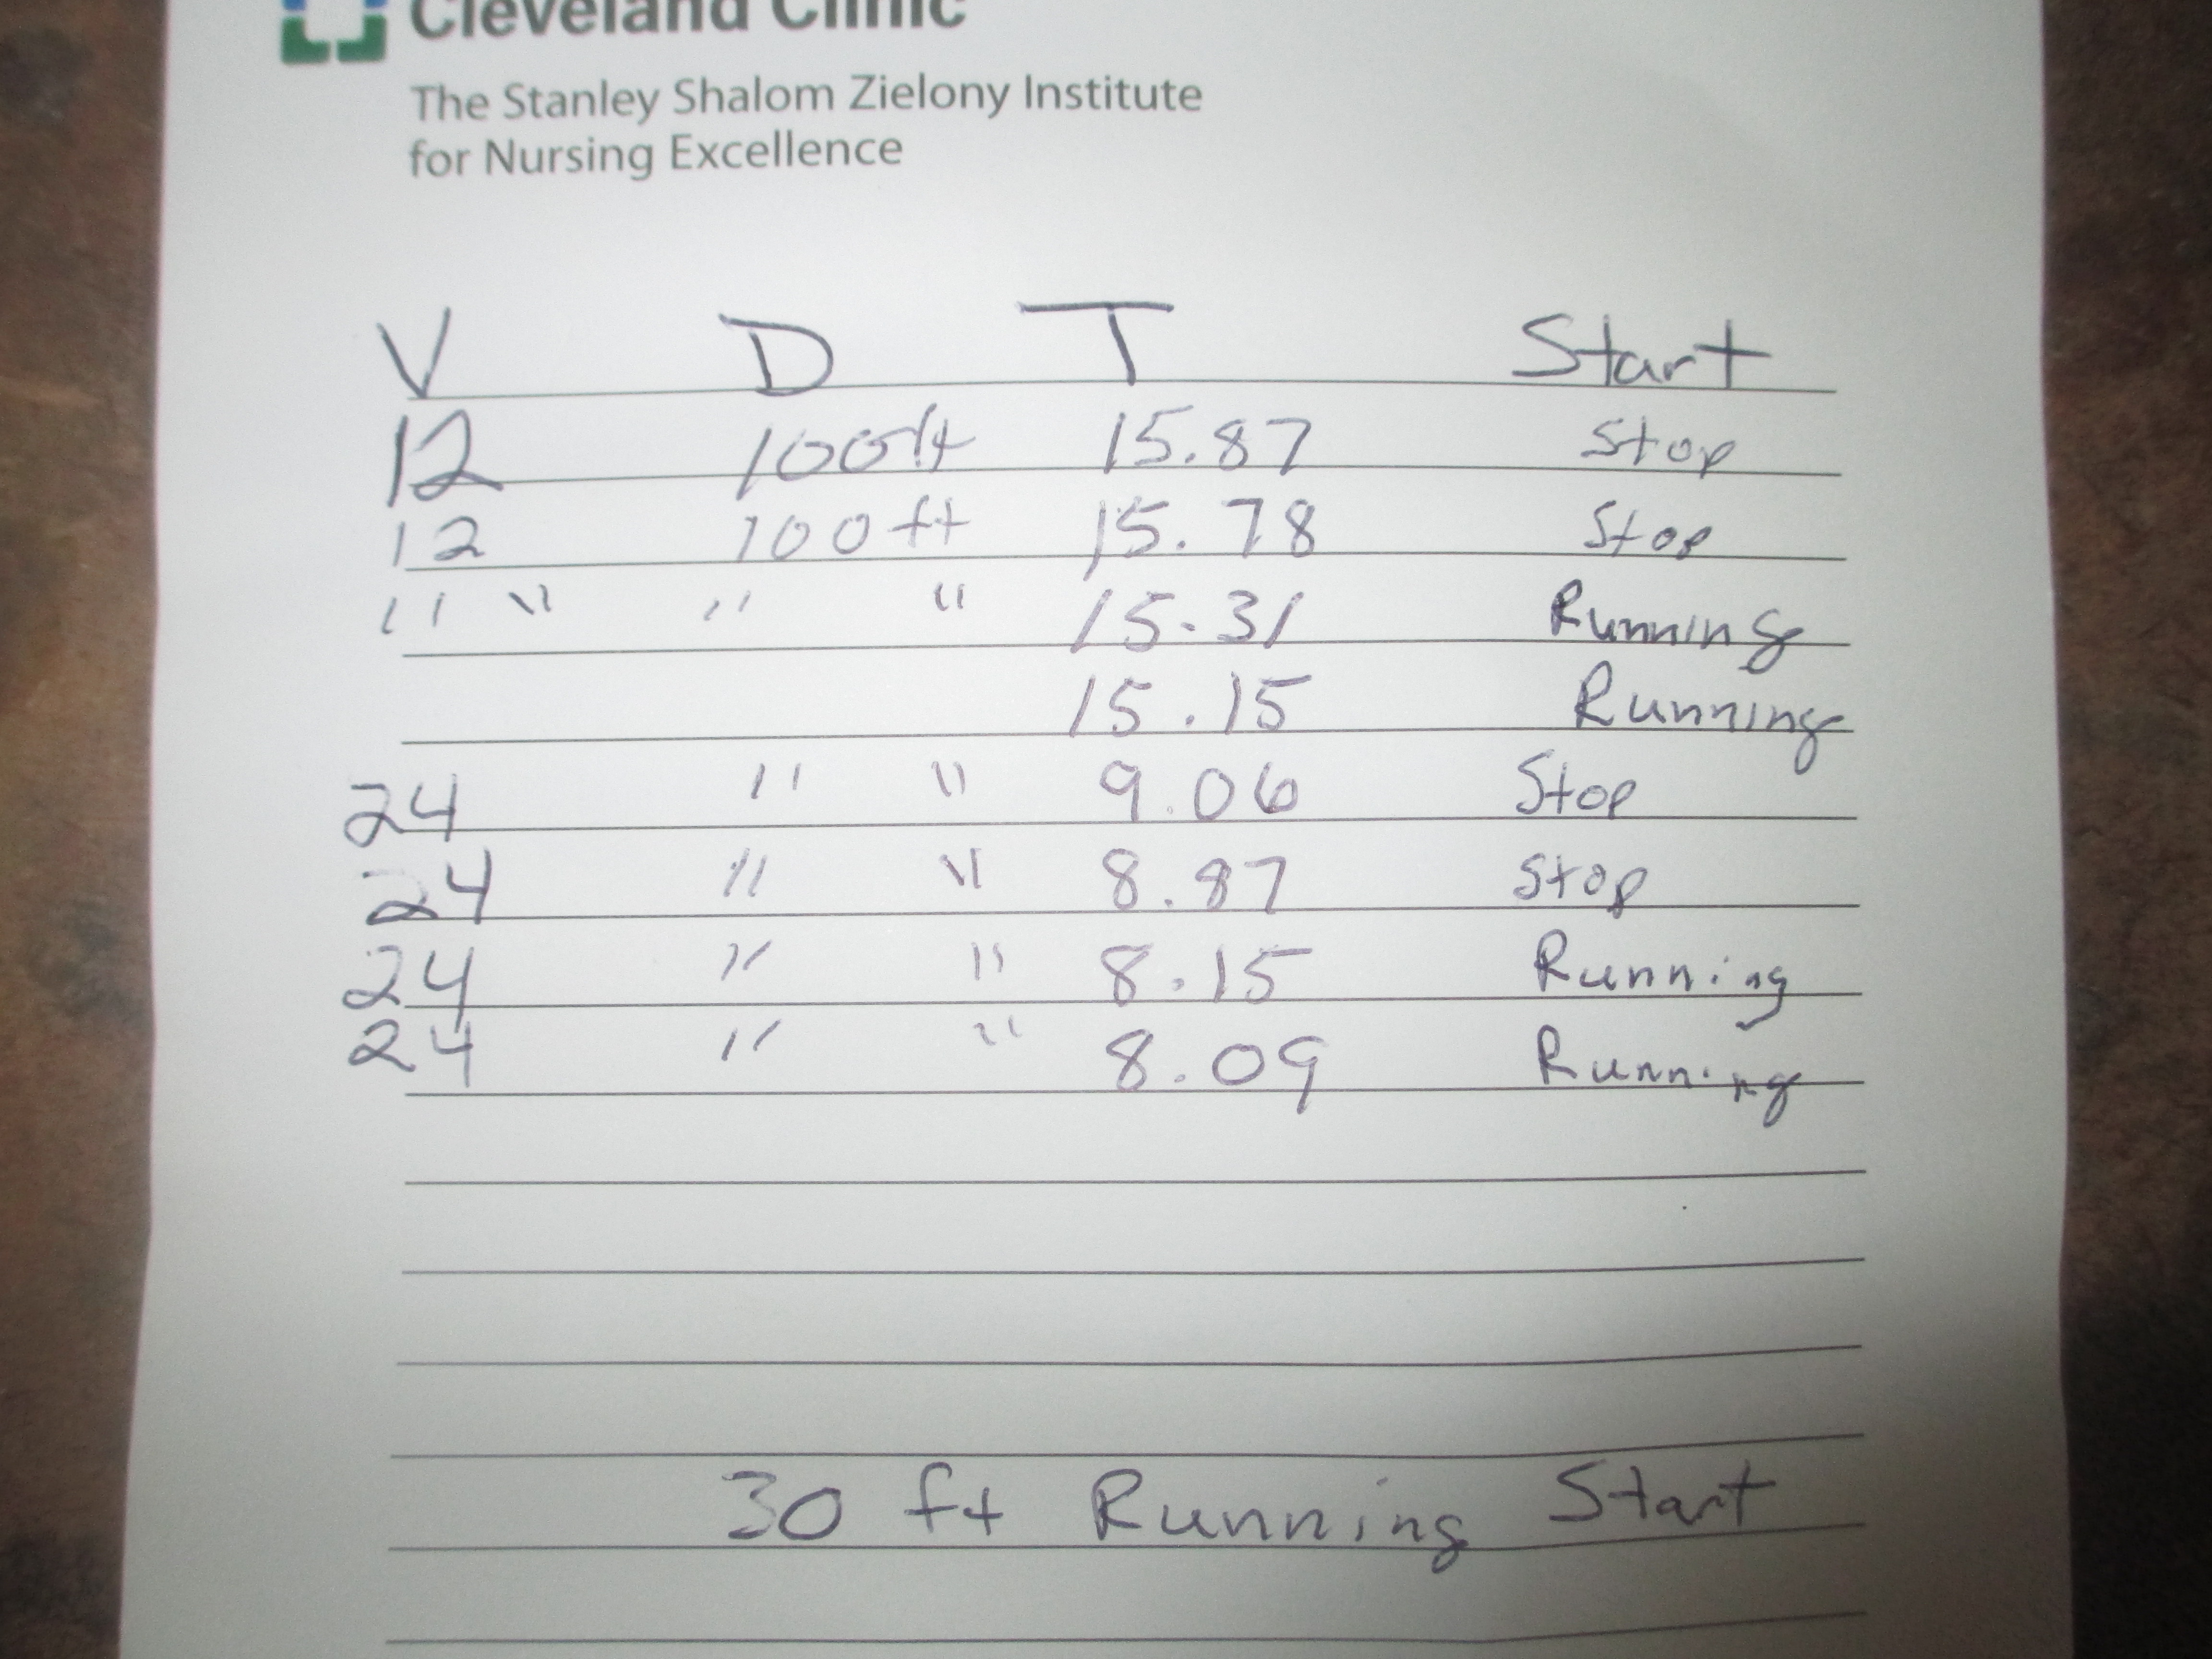 Cleveland Clinic
The Stanley Shalom Zielony Institute
for Nursing Excellence
V D T Start
12 100ft 15.87 Stop
12 100 ft 15.78 Stop
" " " " 15.31 Running
15.15 Running
24 " " 9.06 Stop
24 " " 8.87 Stop
24 " " 8.15 Running
24 " " 8.09 Running
30 ft Running Start